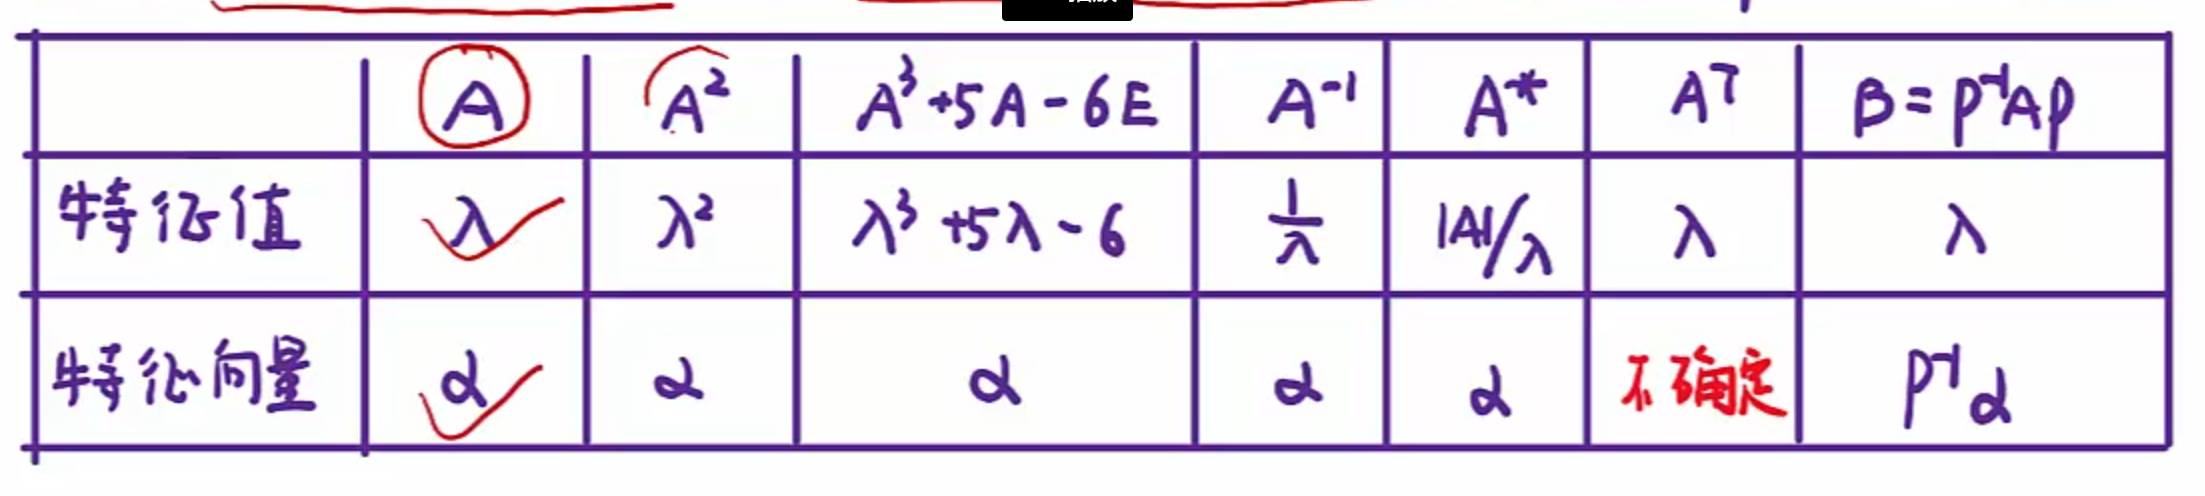 A A² A³+5A-6E A⁻¹ A* Aᵀ B=P⁻¹AP
特征值 λ λ² λ³+5λ-6 1/λ |A|/λ λ λ
特征向量 α α α α α 不确定 P⁻¹α